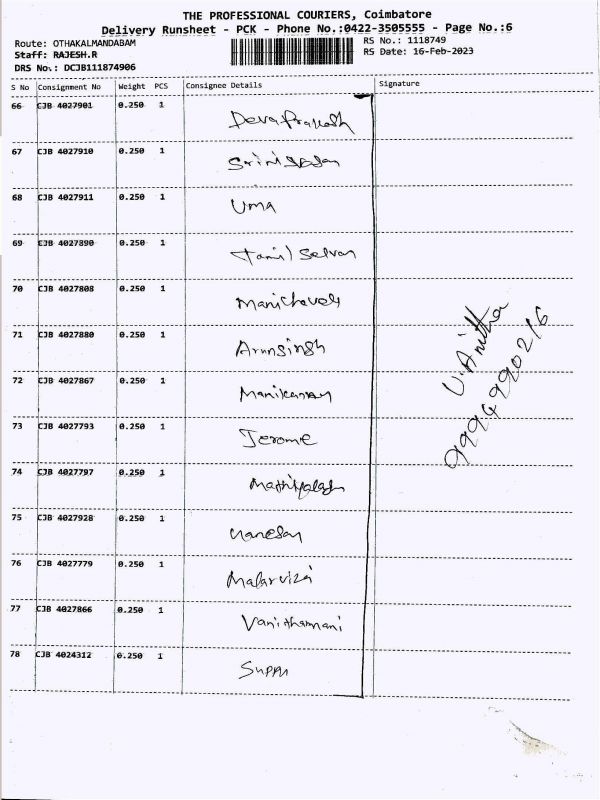 THE PROFESSIONAL COURIERS, Coimbatore
Delivery Runsheet - PCK - Phone No.:0422-3505555 - Page No.:6
Route: OTHAKALMANDABAM
RS No.: 1118749
Staff: RAJESH.R
RS Date: 16-Feb-2023
DRS No.: DCJB111874906
S No Consignment No Weight PCS Consignee Details Signature
66 CJB 4027901 0.250 1 DevaPrakash
67 CJB 4027910 0.250 1
68 CJB 4027911 0.250 1 Uma
69 CJB 4027890 0.250 1 Tamil Selvan
70 CJB 4027808 0.250 1
71 CJB 4027880 0.250 1 Arunsingh
72 CJB 4027867 0.250 1
73 CJB 4027793 0.250 1 Jerome
74 CJB 4027797 0.250 1
75 CJB 4027928 0.250 1
76 CJB 4027779 0.250 1 Malarvizi
77 CJB 4027866 0.250 1 Vanithamani
78 CJB 4024312 0.250 1
V. Anitha